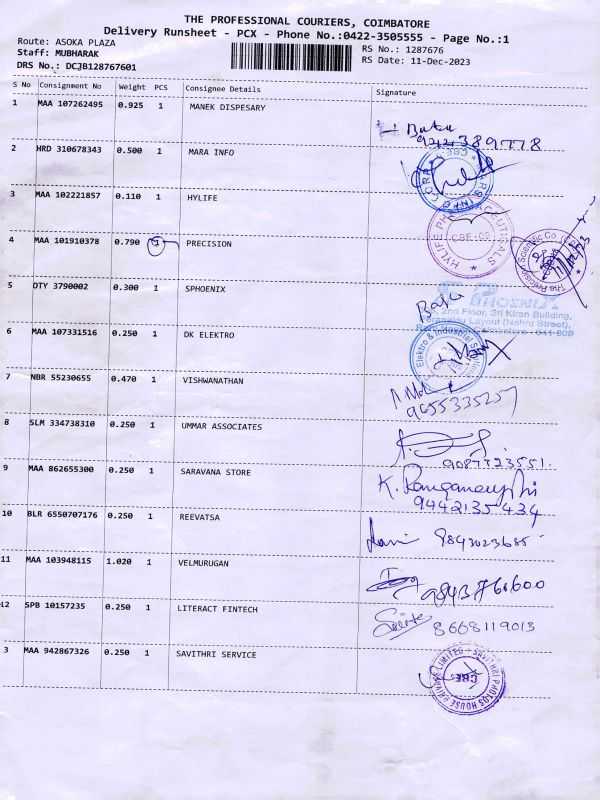 THE PROFESSIONAL COURIERS, COIMBATORE
Delivery Runsheet - PCX - Phone No.:0422-3505555 - Page No.:1
Route: ASOKA PLAZA
Staff: MUBHARAK
DRS No.: DCJB128767601
RS No.: 1287676
RS Date: 11-Dec-2023
S No Consignment No Weight PCS Consignee Details Signature
1 MAA 107262495 0.925 1 MANEK DISPESARY
Babu
2 HRD 310678343 0.500 1 MARA INFO
3 MAA 102221857 0.110 1 HYLIFE
HYLIFE PHARMACEUTICALS
4 MAA 101910378 0.790 1 PRECISION
The Precision Scientific Co.
5 OTY 3790002 0.300 1 SPHOENIX
PHOENIX
2nd Floor, Sri Kiran Building,
Layout (Nehru Street),
Coimbatore - 641 009
6 MAA 107331516 0.250 1 DK ELEKTRO
Elektro & Industrial
7 NBR 55230655 0.470 1 VISHWANATHAN
9655335257
8 SLM 334738310 0.250 1 UMMAR ASSOCIATES
9087723551.
9 MAA 862655300 0.250 1 SARAVANA STORE
K.
9442135434
10 BLR 6550707176 0.250 1 REEVATSA
9843023685
11 MAA 103948115 1.020 1 VELMURUGAN
12 SPB 10157235 0.250 1 LITERACT FINTECH
8668119013
3 MAA 942867326 0.250 1 SAVITHRI SERVICE
SAVITHRI PHOTOS HOUSE PRIVATE LIMITED
CBE